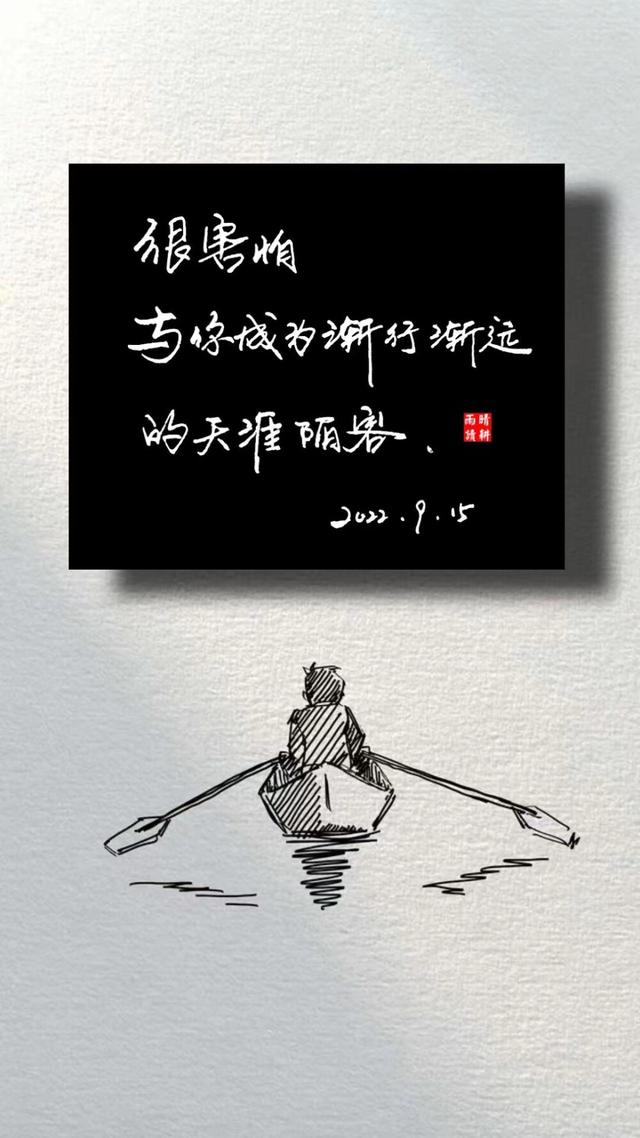 很害怕
与你成为渐行渐远
的天涯陌客.
晴耕
雨读
2022.9.15